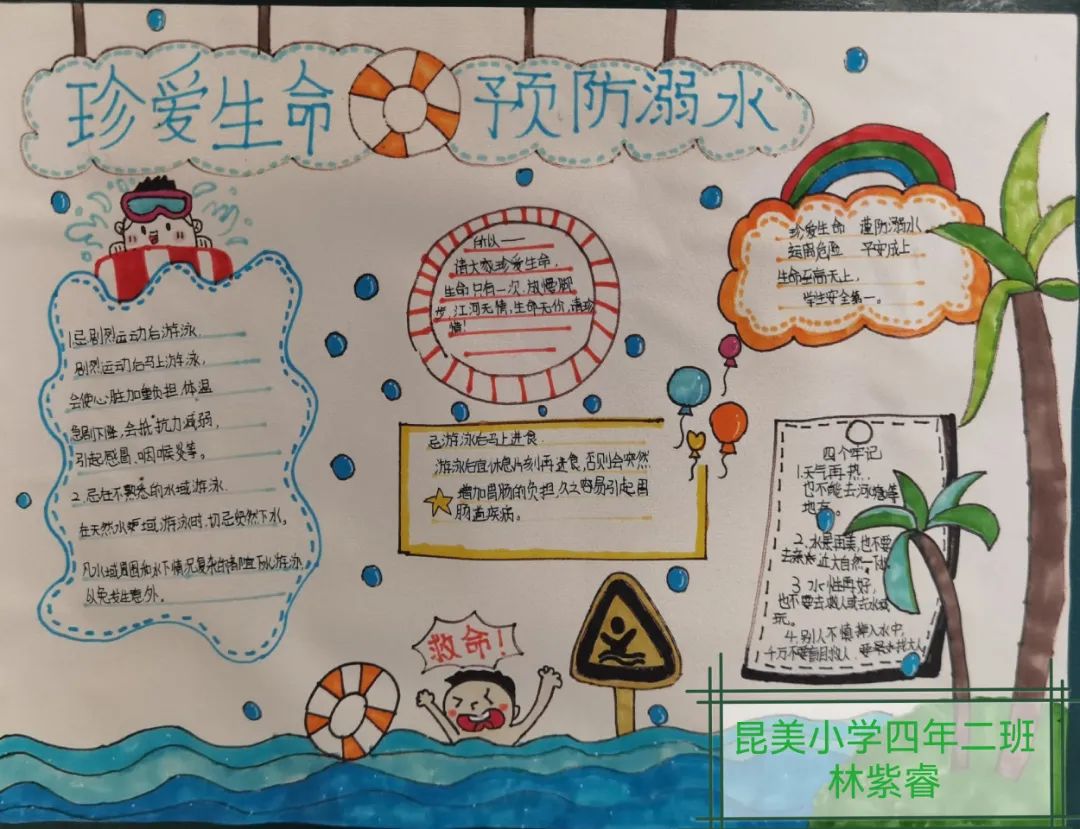 珍爱生命 预防溺水
1.忌剧烈运动后游泳.
剧烈运动后马上游泳,
会使心脏加重负担,体温
急剧下降,会抵抗力减弱,
引起感冒、咽喉炎等。
2.忌在不熟悉的水域游泳.
在天然水域游泳时,切忌贸然下水。
凡水域周围和水下情况复杂的都宜下水游泳
以免发生意外。
所以——
请大家珍爱生命,
生命只有一次.放慢脚
步,江河无情,生命无价,请珍
惜!
忌游泳后马上进食.
游泳后宜休息片刻再进食,否则会突然
增加胃肠的负担,久之容易引起胃
肠道疾病。
珍爱生命 谨防溺水
远离危险 平安成上
生命至高无上,
学生安全第一。
四个牢记
1.天气再热,
也不能去河塘等
地方。
2.水景再美,也不要
去亲近大自然一下。
3.水性再好,
也不要去救人或去水域
玩。
4.别人不慎掉入水中,
千万不要盲目救人.要呼大人
救命!
昆美小学四年二班
林紫睿